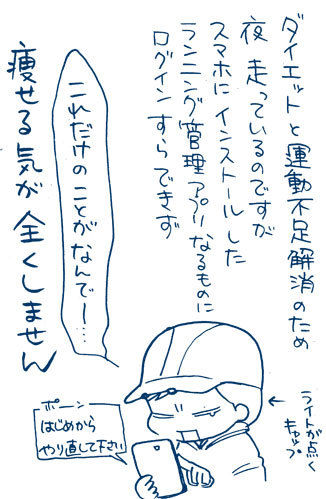 ダイエットと運動不足解消のため
夜 走っているのですが
スマホにインストールした
ランニング管理アプリなるものに
ログインすらできず
これだけのことがなんでー…
痩せる気が全くしません
←ライトが点く
キャップ
ポーン
はじめから
やり直して下さい